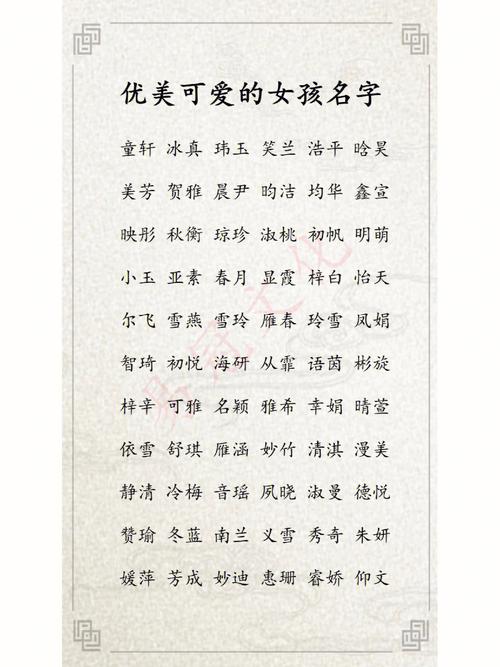 优美可爱的女孩名字
童轩 冰真 玮玉 笑兰 浩平 晗昊
美芳 贺雅 晨尹 昀洁 均华 鑫宣
映彤 秋衡 琼珍 淑桃 初帆 明萌
小玉 亚素 春月 显霞 梓白 怡天
尔飞 雪燕 雪玲 雁春 玲雪 凤娟
智琦 初悦 海研 从霏 语茵 彬旋
梓辛 可雅 名颖 雅希 幸娟 晴萱
依雪 舒琪 雁涵 妙竹 清淇 漫美
静清 冷梅 音瑶 夙晓 淑曼 德悦
赞瑜 冬蓝 南兰 义雪 秀奇 朱妍
媛萍 芳成 妙迪 惠珊 睿娇 仰文